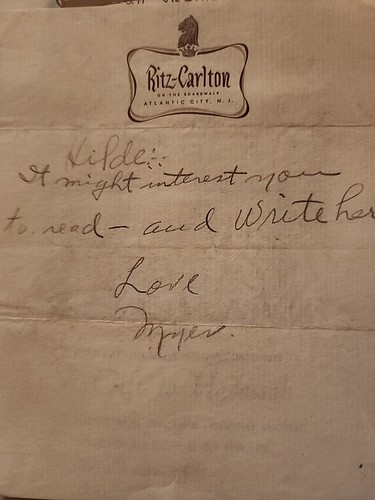 Ritz-Carlton
ON THE BOARDWALK
ATLANTIC CITY, N. J.
Hilde::
It might interest you
to read — and Write her
Love
Myer.